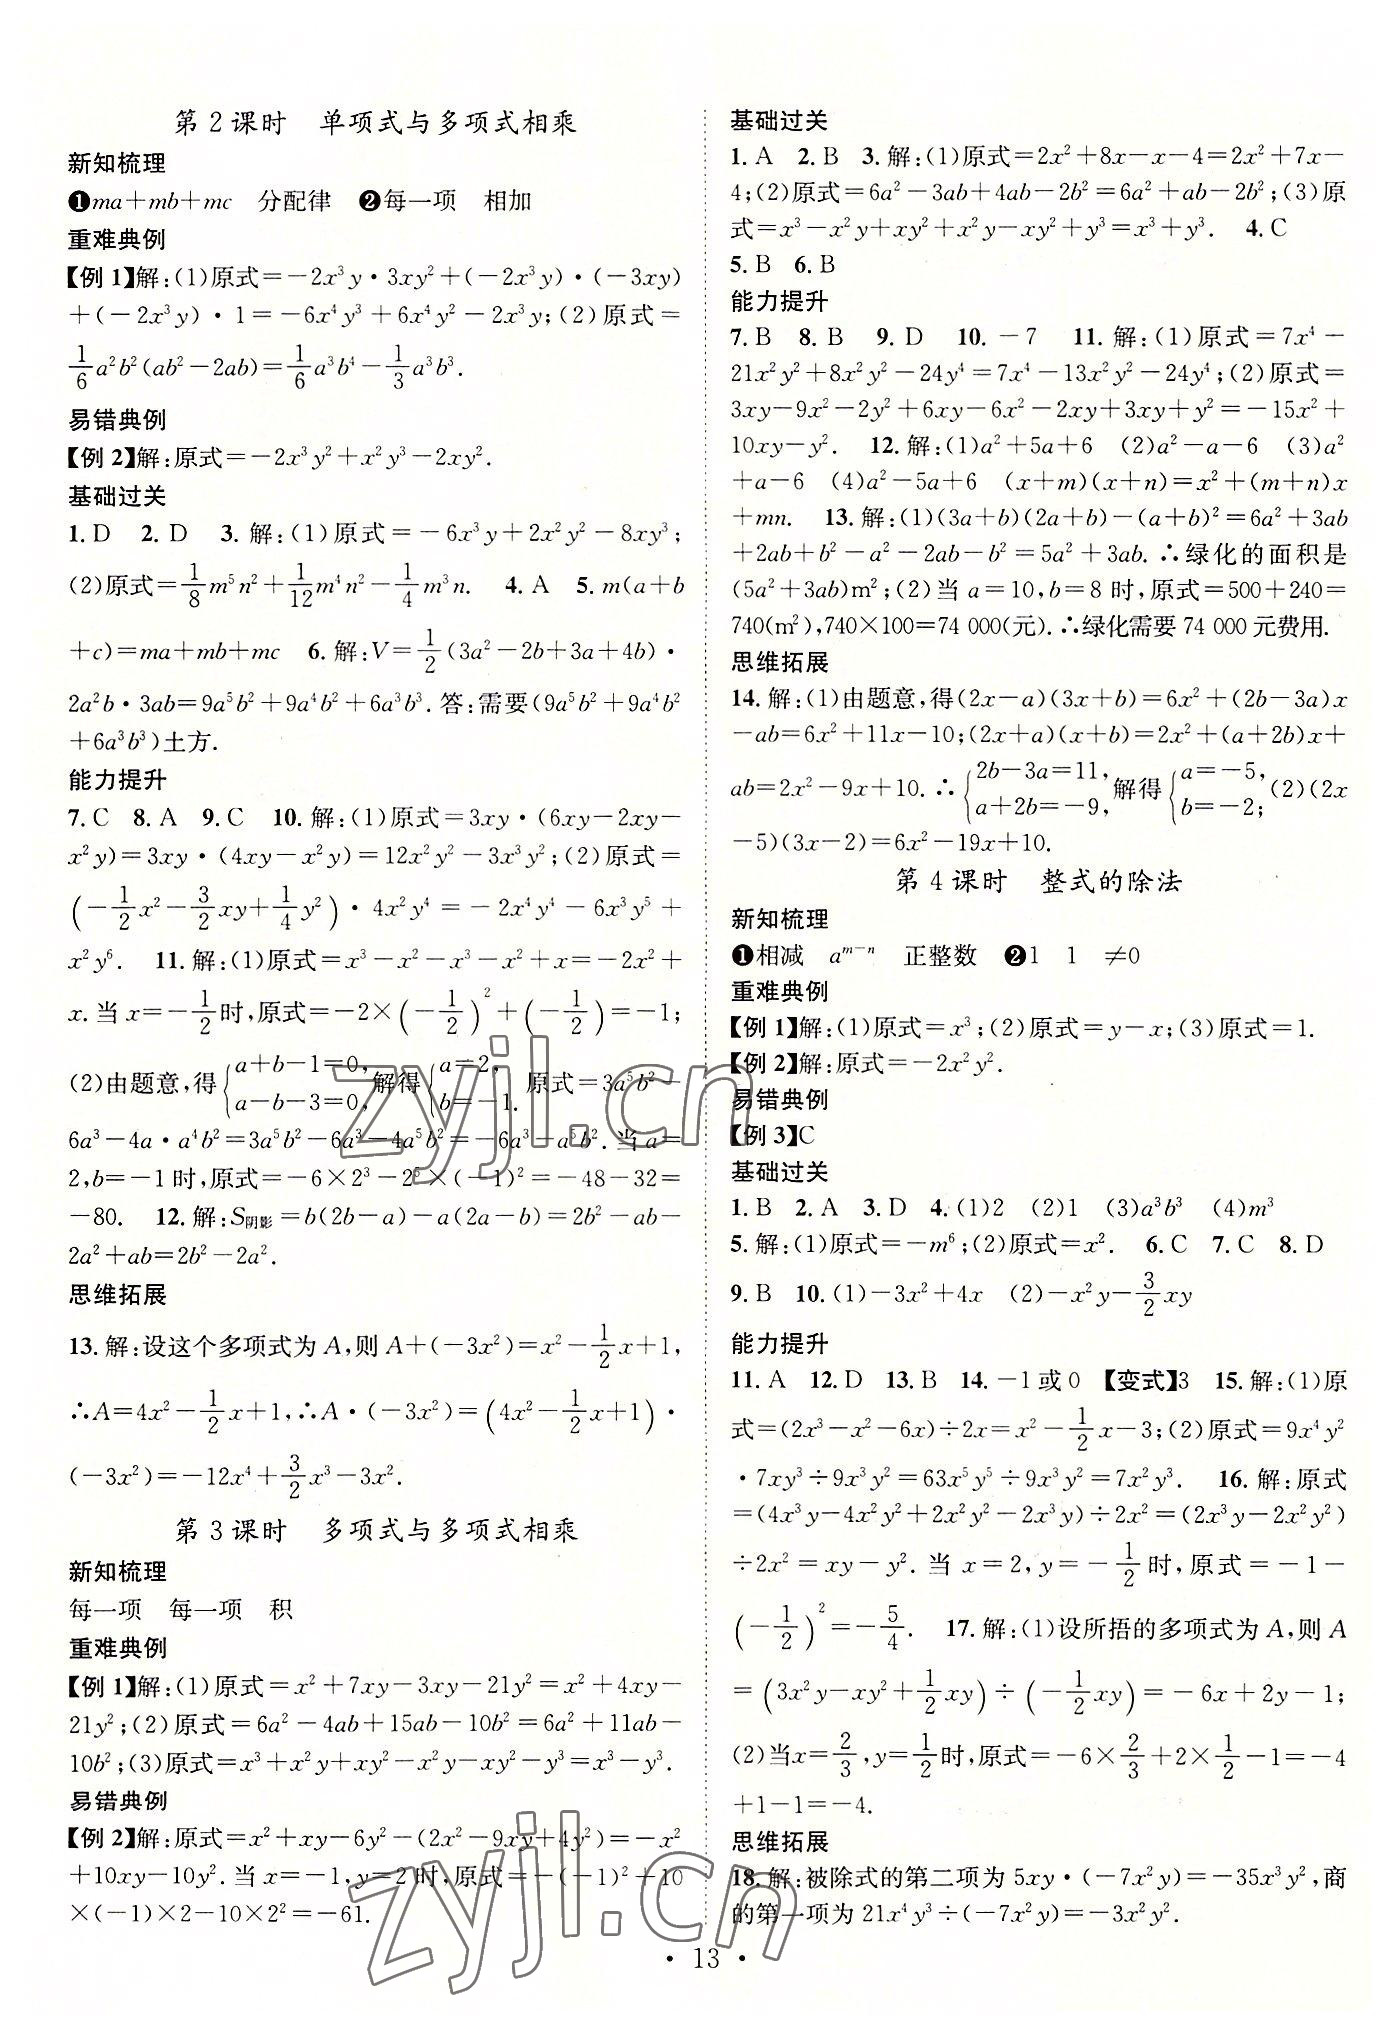 第2课时　单项式与多项式相乘
新知梳理
❶ma+mb+mc　分配律　❷每一项　相加
重难典例
【例1】解:(1)原式=-2x³y·3xy²+(-2x³y)·(-3xy)
+(-2x³y)·1=-6x⁴y³+6x⁴y²-2x³y;(2)原式=
1/6a²b²(ab²-2ab)=1/6a³b⁴-1/3a³b³.
易错典例
【例2】解:原式=-2x³y²+x²y³-2xy².
基础过关
1.D　2.D　3.解:(1)原式=-6x³y+2x²y²-8xy³;
(2)原式=1/8m⁵n²+1/12m⁴n²-1/4m³n.　4.A　5.m(a+b
+c)=ma+mb+mc　6.解:V=1/2(3a²-2b+3a+4b)·
2a²b·3ab=9a⁵b²+9a⁴b²+6a³b³.答:需要(9a⁵b²+9a⁴b²
+6a³b³)土方.
能力提升
7.C　8.A　9.C　10.解:(1)原式=3xy·(6xy-2xy-
x²y)=3xy·(4xy-x²y)=12x²y²-3x³y²;(2)原式=
(-1/2x²-3/2xy+1/4y²)·4x²y⁴=-2x⁴y⁴-6x³y⁵+
x²y⁶.　11.解:(1)原式=x³-x²-x³-x²+x=-2x²+
x.当x=-1/2时,原式=-2×(-1/2)²+(-1/2)=-1;
(2)由题意,得{a+b-1=0, a-b-3=0,解得{a=2, b=-1.　原式=3a⁵b²-
6a³-4a·a⁴b²=3a⁵b²-6a³-4a⁵b²=-6a³-a⁵b².当a=
2,b=-1时,原式=-6×2³-2⁵×(-1)²=-48-32=
-80.　12.解:S阴影=b(2b-a)-a(2a-b)=2b²-ab-
2a²+ab=2b²-2a².
思维拓展
13.解:设这个多项式为A,则A+(-3x²)=x²-1/2x+1,
∴A=4x²-1/2x+1,∴A·(-3x²)=(4x²-1/2x+1)·
(-3x²)=-12x⁴+3/2x³-3x².
第3课时　多项式与多项式相乘
新知梳理
每一项　每一项　积
重难典例
【例1】解:(1)原式=x²+7xy-3xy-21y²=x²+4xy-
21y²;(2)原式=6a²-4ab+15ab-10b²=6a²+11ab-
10b²;(3)原式=x³+x²y+xy²-x²y-xy²-y³=x³-y³.
易错典例
【例2】解:原式=x²+xy-6y²-(2x²-9xy+4y²)=-x²
+10xy-10y².当x=-1,y=2时,原式=-(-1)²+10
×(-1)×2-10×2²=-61.
基础过关
1.A　2.B　3.解:(1)原式=2x²+8x-x-4=2x²+7x-
4;(2)原式=6a²-3ab+4ab-2b²=6a²+ab-2b²;(3)原
式=x³-x²y+xy²+x²y-xy²+y³=x³+y³.　4.C
5.B　6.B
能力提升
7.B　8.B　9.D　10.-7　11.解:(1)原式=7x⁴-
21x²y²+8x²y²-24y⁴=7x⁴-13x²y²-24y⁴;(2)原式=
3xy-9x²-2y²+6xy-6x²-2xy+3xy+y²=-15x²+
10xy-y².　12.解:(1)a²+5a+6　(2)a²-a-6　(3)a²
+a-6　(4)a²-5a+6　(x+m)(x+n)=x²+(m+n)x
+mn.　13.解:(1)(3a+b)(2a+b)-(a+b)²=6a²+3ab
+2ab+b²-a²-2ab-b²=5a²+3ab.∴绿化的面积是
(5a²+3ab)m²;(2)当a=10,b=8时,原式=500+240=
740(m²),740×100=74 000(元).∴绿化需要74 000元费用.
思维拓展
14.解:(1)由题意,得(2x-a)(3x+b)=6x²+(2b-3a)x
-ab=6x²+11x-10;(2x+a)(x+b)=2x²+(a+2b)x+
ab=2x²-9x+10.∴{2b-3a=11, a+2b=-9,解得{a=-5, b=-2;(2)(2x
-5)(3x-2)=6x²-19x+10.
第4课时　整式的除法
新知梳理
❶相减　aᵐ⁻ⁿ　正整数　❷1　1　≠0
重难典例
【例1】解:(1)原式=x³;(2)原式=y-x;(3)原式=1.
【例2】解:原式=-2x²y².
易错典例
【例3】C
基础过关
1.B　2.A　3.D　4.(1)2　(2)1　(3)a³b³　(4)m³
5.解:(1)原式=-m⁶;(2)原式=x².　6.C　7.C　8.D
9.B　10.(1)-3x²+4x　(2)-x²y-3/2xy
能力提升
11.A　12.D　13.B　14.-1或0　【变式】3　15.解:(1)原
式=(2x³-x²-6x)÷2x=x²-1/2x-3;(2)原式=9x⁴y²
·7xy³÷9x³y²=63x⁵y⁵÷9x³y²=7x²y³.　16.解:原式
=(4x³y-4x²y²+2x²y²-2x³y)÷2x²=(2x³y-2x²y²)
÷2x²=xy-y².当x=2,y=-1/2时,原式=-1-
(-1/2)²=-5/4.　17.解:(1)设所捂的多项式为A,则A
=(3x²y-xy²+1/2xy)÷(-1/2xy)=-6x+2y-1;
(2)当x=2/3,y=1/2时,原式=-6×2/3+2×1/2-1=-4
+1-1=-4.
思维拓展
18.解:被除式的第二项为5xy·(-7x²y)=-35x³y²,商
的第一项为21x⁴y³÷(-7x²y)=-3x²y².
·13·
zyjl.cn
zyjl.cn